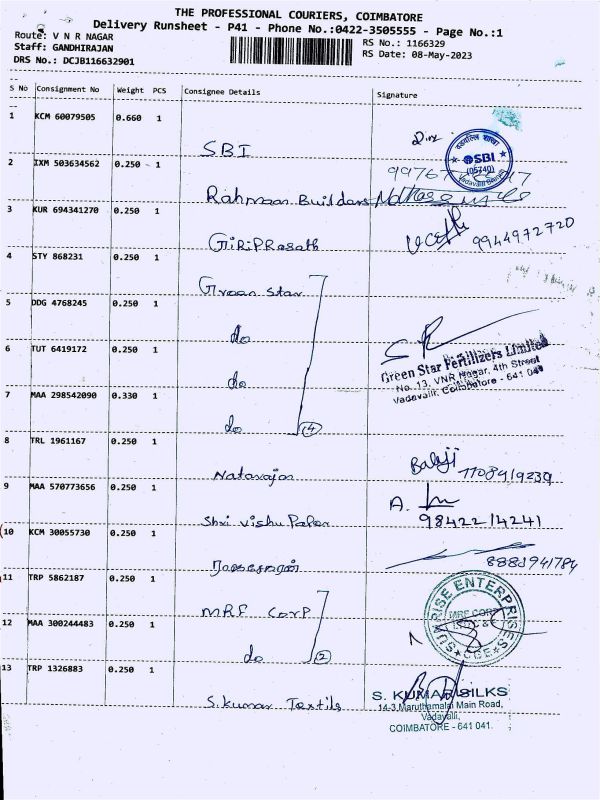 THE PROFESSIONAL COURIERS, COIMBATORE
Delivery Runsheet - P41 - Phone No.:0422-3505555 - Page No.:1
Route: V N R NAGAR
RS No.: 1166329
Staff: GANDHIRAJAN
RS Date: 08-May-2023
DRS No.: DCJB116632901
S No Consignment No Weight PCS Consignee Details Signature
1 KCM 60079505 0.660 1 SBI
SBI
(05740)
2 IXM 503634562 0.250 1 Rahmaan Builders
3 KUR 694341270 0.250 1 GiRiPRasath 9944972720
4 STY 868231 0.250 1 Green Star
5 DDG 4768245 0.250 1 do
6 TUT 6419172 0.250 1 do
Green Star Fertilizers Limited
No. 13, VNR Nagar, 4th Street
Vadavalli, Coimbatore - 641 041
7 MAA 298542090 0.330 1 do (4)
8 TRL 1961167 0.250 1 Natarajan Balaji
9 MAA 570773656 0.250 1 Shri Vishu 9842214241
10 KCM 30055730 0.250 1
11 TRP 5862187 0.250 1 MRF CORP
SUNRISE ENTERPRISES
MRF CORP
CBE
12 MAA 300244483 0.250 1 do (2)
13 TRP 1326883 0.250 1 S.kumar Textils
S. KUMAR SILKS
14-3, Maruthamalai Main Road,
Vadavalli,
COIMBATORE - 641 041.